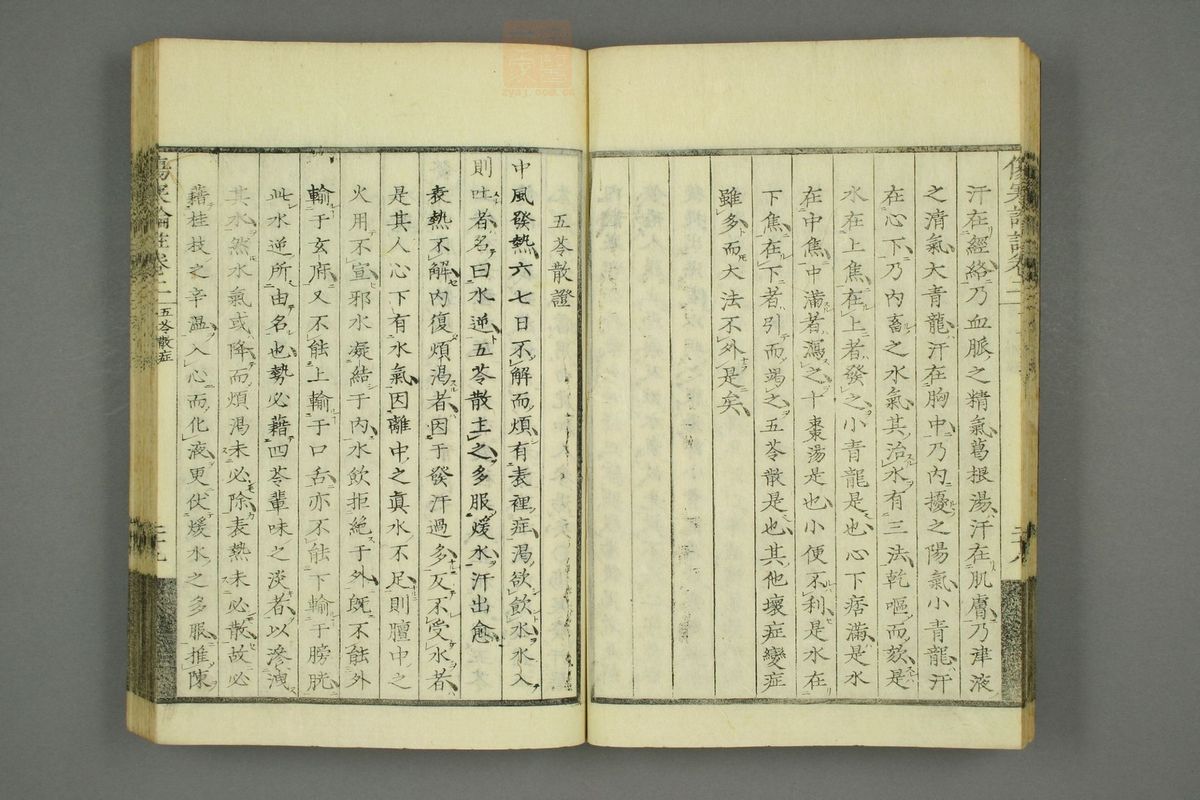 汗在經絡乃血脈之精氣葛根湯汗在肌膚乃津液
之清氣大青龍汗在胸中乃内擾之陽氣小青龍汗
在心下乃内畜之水氣其治水有三法乾嘔而欬是
水在上焦在上者發之小青龍是也心下痞滿是水
在中焦中滿者瀉之十棗湯是也小便不利是水在
下焦在下者引而竭之五苓散是也其他壞症變症
雖多而大法不外是矣
五苓散證
中風發熱六七日不解而煩有表裡症渴欲飲水水入
則吐者名曰水逆五苓散主之多服煖水汗出愈
表熱不解内復煩渴者因于發汗過多反不受水者
是其人心下有水氣因離中之眞水不足則膻中之
火用不宣邪水凝結于内水飲拒絶于外既不能外
輸于玄府又不能上輸于口舌亦不能下輸于膀胱
此水逆所由名也勢必藉四苓輩味之淡者以滲洩
其水然水氣或降而煩渴未必除表熱未必散故必
藉桂枝之辛温入心而化液更伏煖水之多服推陳
傷寒論註卷二 五苓散症
二十九
zysj.com.cn